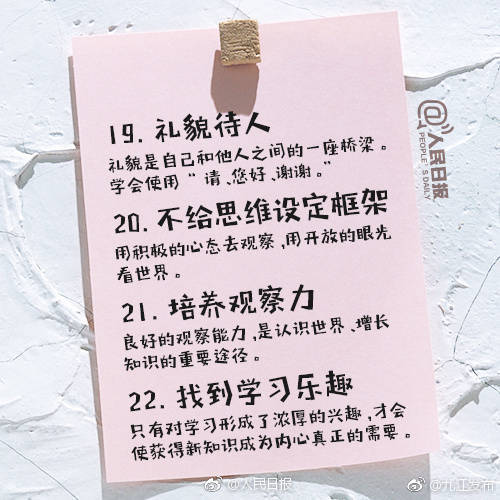 19. 礼貌待人
礼貌是自己和他人之间的一座桥梁。
学会使用“请、您好、谢谢。”
20. 不给思维设定框架
用积极的心态去观察,用开放的眼光
看世界。
21. 培养观察力
良好的观察能力,是认识世界、增长
知识的重要途径。
22. 找到学习乐趣
只有对学习形成了浓厚的兴趣,才会
使获得新知识成为内心真正的需要。
@人民日报
PEOPLE'S DAILY
@人民日报
@九江发布